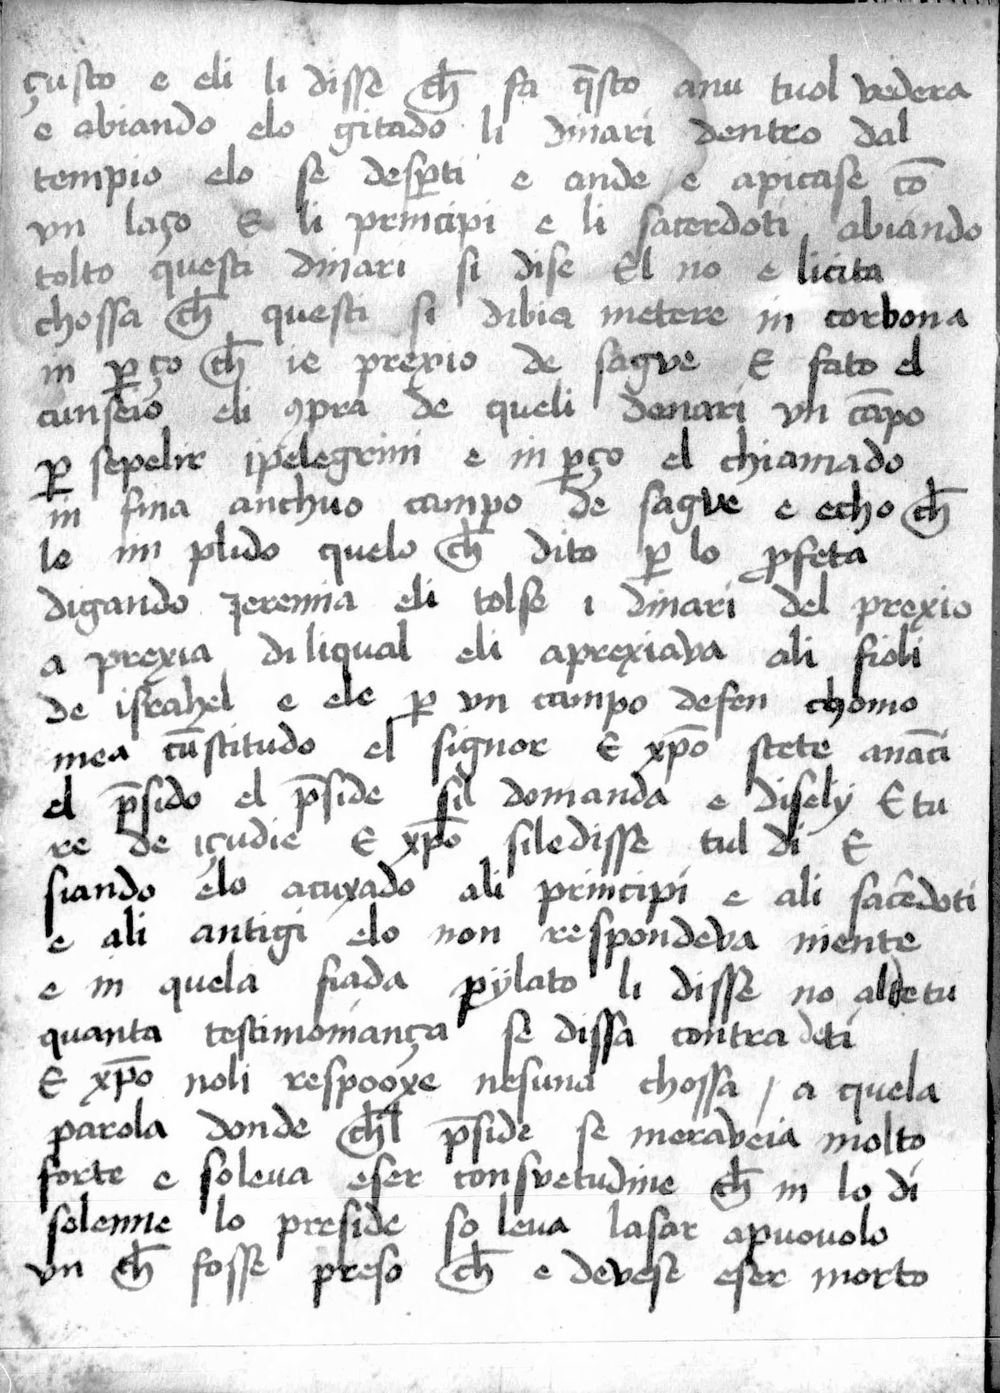 çusto e eli li disse ch̄ fa q̄sto anu tuol vedera
e abiando elo gitado li dinari dentro dal
tempio elo se desꝑti e ande e apicase cō
vn laço E li principi e li sacerdoti abiando
tolto questi dinari si dise El no e licita
chossa ch̄ questi si dibia metere in corbona
in ꝑço ch̄ ie prexio de sague E fato el
cunseio eli ꝯpra de queli denari vn cāpo
ꝑ sepelir ipelegrini e in ꝑço el chiamado
in fina anchuo campo de sague e echo ch̄
le im plido quelo ch̄ dito ꝑ lo ꝓfeta
digando zeremia eli tolse i dinari del prexio
a prexia di liqual eli aprexiava ali fioli
de israhel e ele ꝑ vn campo defen chomo
mea cūstitudo el signor E xp̄o stete anāci
el p̄sido el p̄side sil domanda e disely E tu
re de içudie E xp̄o siledisse tul di E
siando elo acuxado ali principi e ali sac̄doti
e ali antigi elo non respondeva niente
e in quela fiada pylato li disse no alde tu
quanta testimoniança se dissa contra deti
E xp̄o noli respooxe nesuna chossa / a quela
parola donde ch̄l p̄side se meraveia molto
forte e soleua eser consvetudine ch̄ in lo di
solenne lo preside so leua lasar apuouolo
vn ch̄ fosse preso ch̄ e devese eser morto